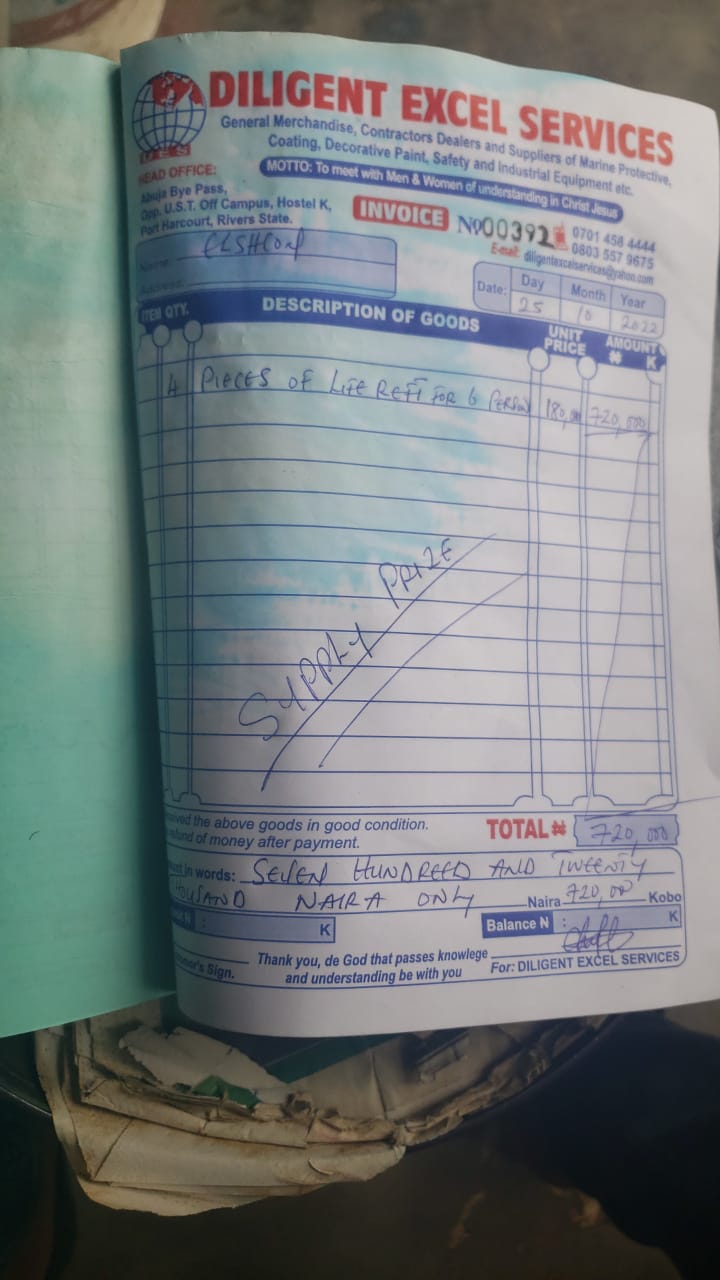 DILIGENT EXCEL SERVICES
General Merchandise, Contractors Dealers and Suppliers of Marine Protective,
Coating, Decorative Paint, Safety and Industrial Equipment etc.
MOTTO: To meet with Men & Women of understanding in Christ Jesus
D E S
HEAD OFFICE:
Abuja Bye Pass,
Opp. U.S.T. Off Campus, Hostel K,
Port Harcourt, Rivers State.
INVOICE
No 00392
0701 458 4444
0803 557 9675
E-mail: diligentexcelservices@yahoo.com
Name:
Address:
Date: Day Month Year
25 10 2022
ITEM QTY. DESCRIPTION OF GOODS UNIT PRICE AMOUNT ₦ K
4 PIECES OF LIFE REFT FOR 6 PERSON 180,000 720,000
SUPPLY PRIZE
the above goods in good condition.
of money after payment.
TOTAL ₦ 720,000
in words: SEVEN HUNDREED AND TWEENTY
NAIRA ONLY Naira 720,00 Kobo
: K
Balance N : K
Sign.
Thank you, de God that passes knowlege
and understanding be with you
For: DILIGENT EXCEL SERVICES